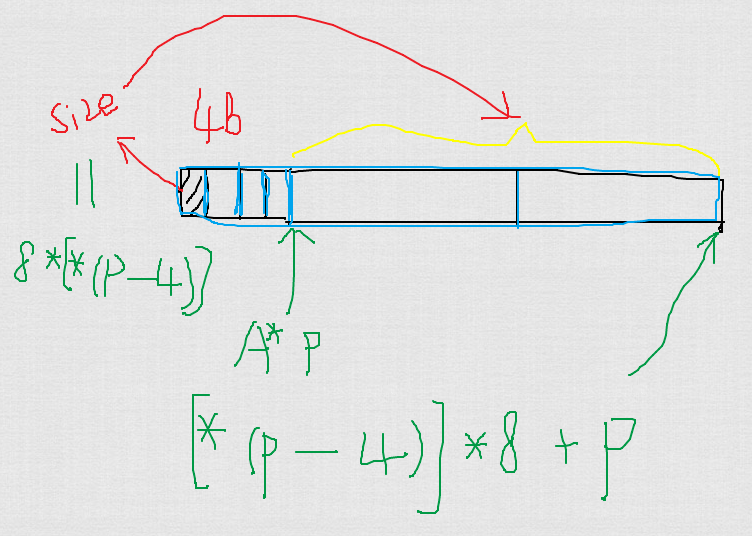 size
4b
||
8*[*(P-4)]
A* P
[*(P-4)]*8+P